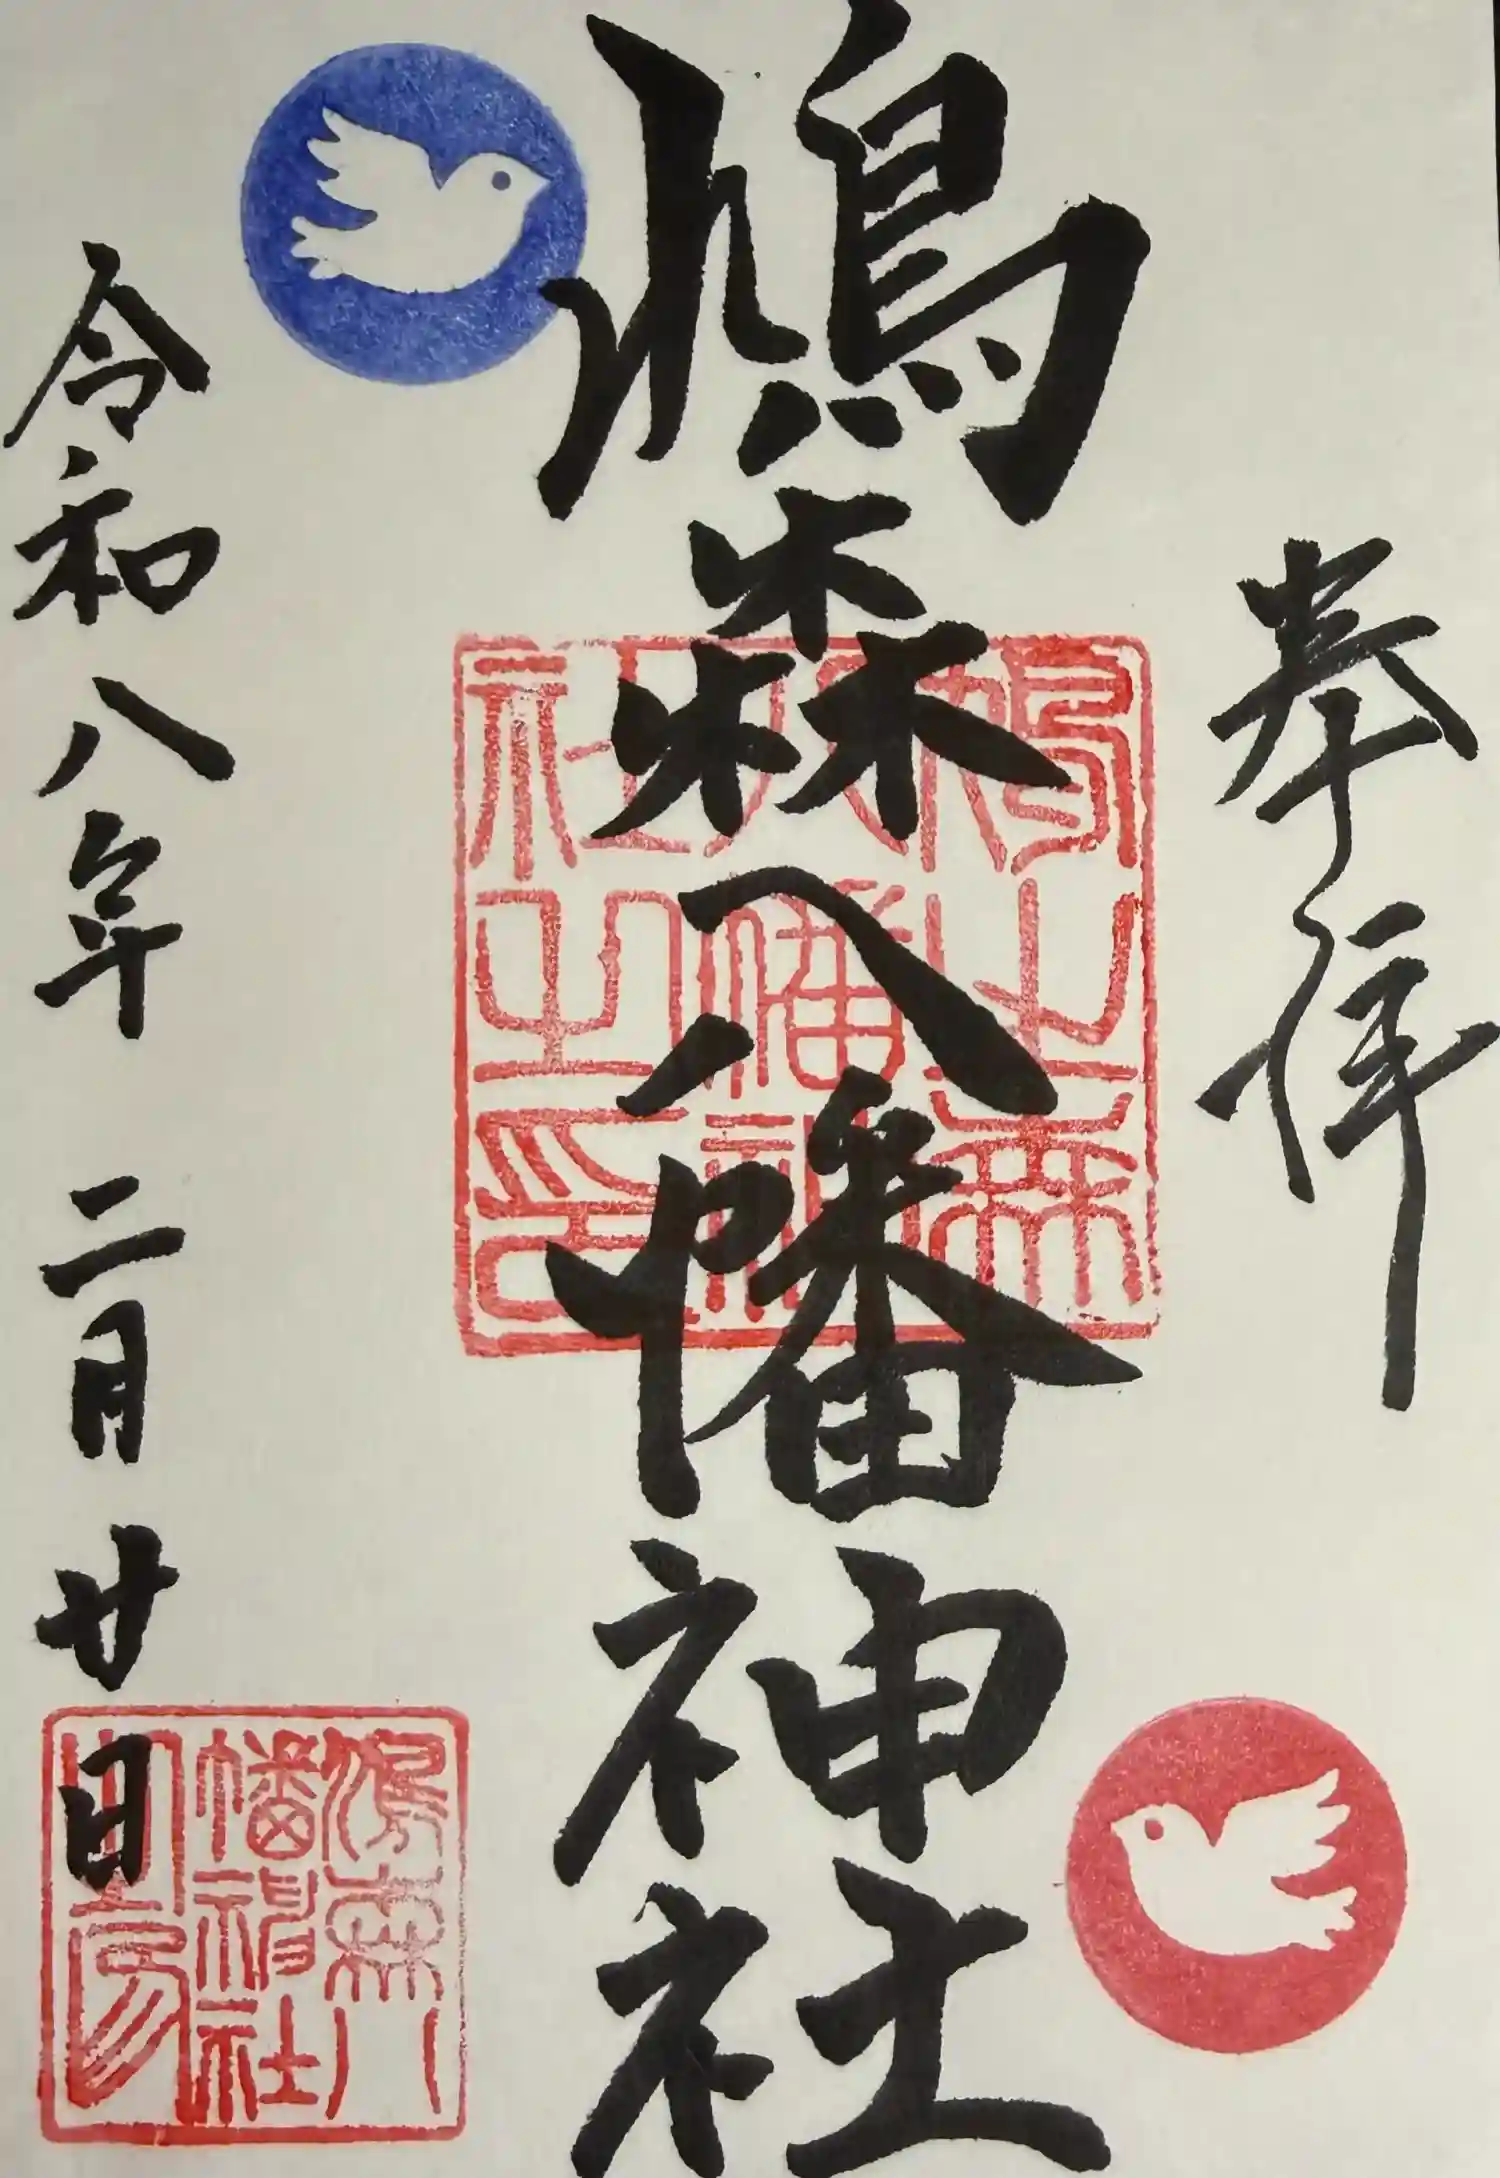 奉拝
鳩森八幡神社
鳩之森
八幡神
社之印
令和八年 二月廿日
鳩森八
幡神社